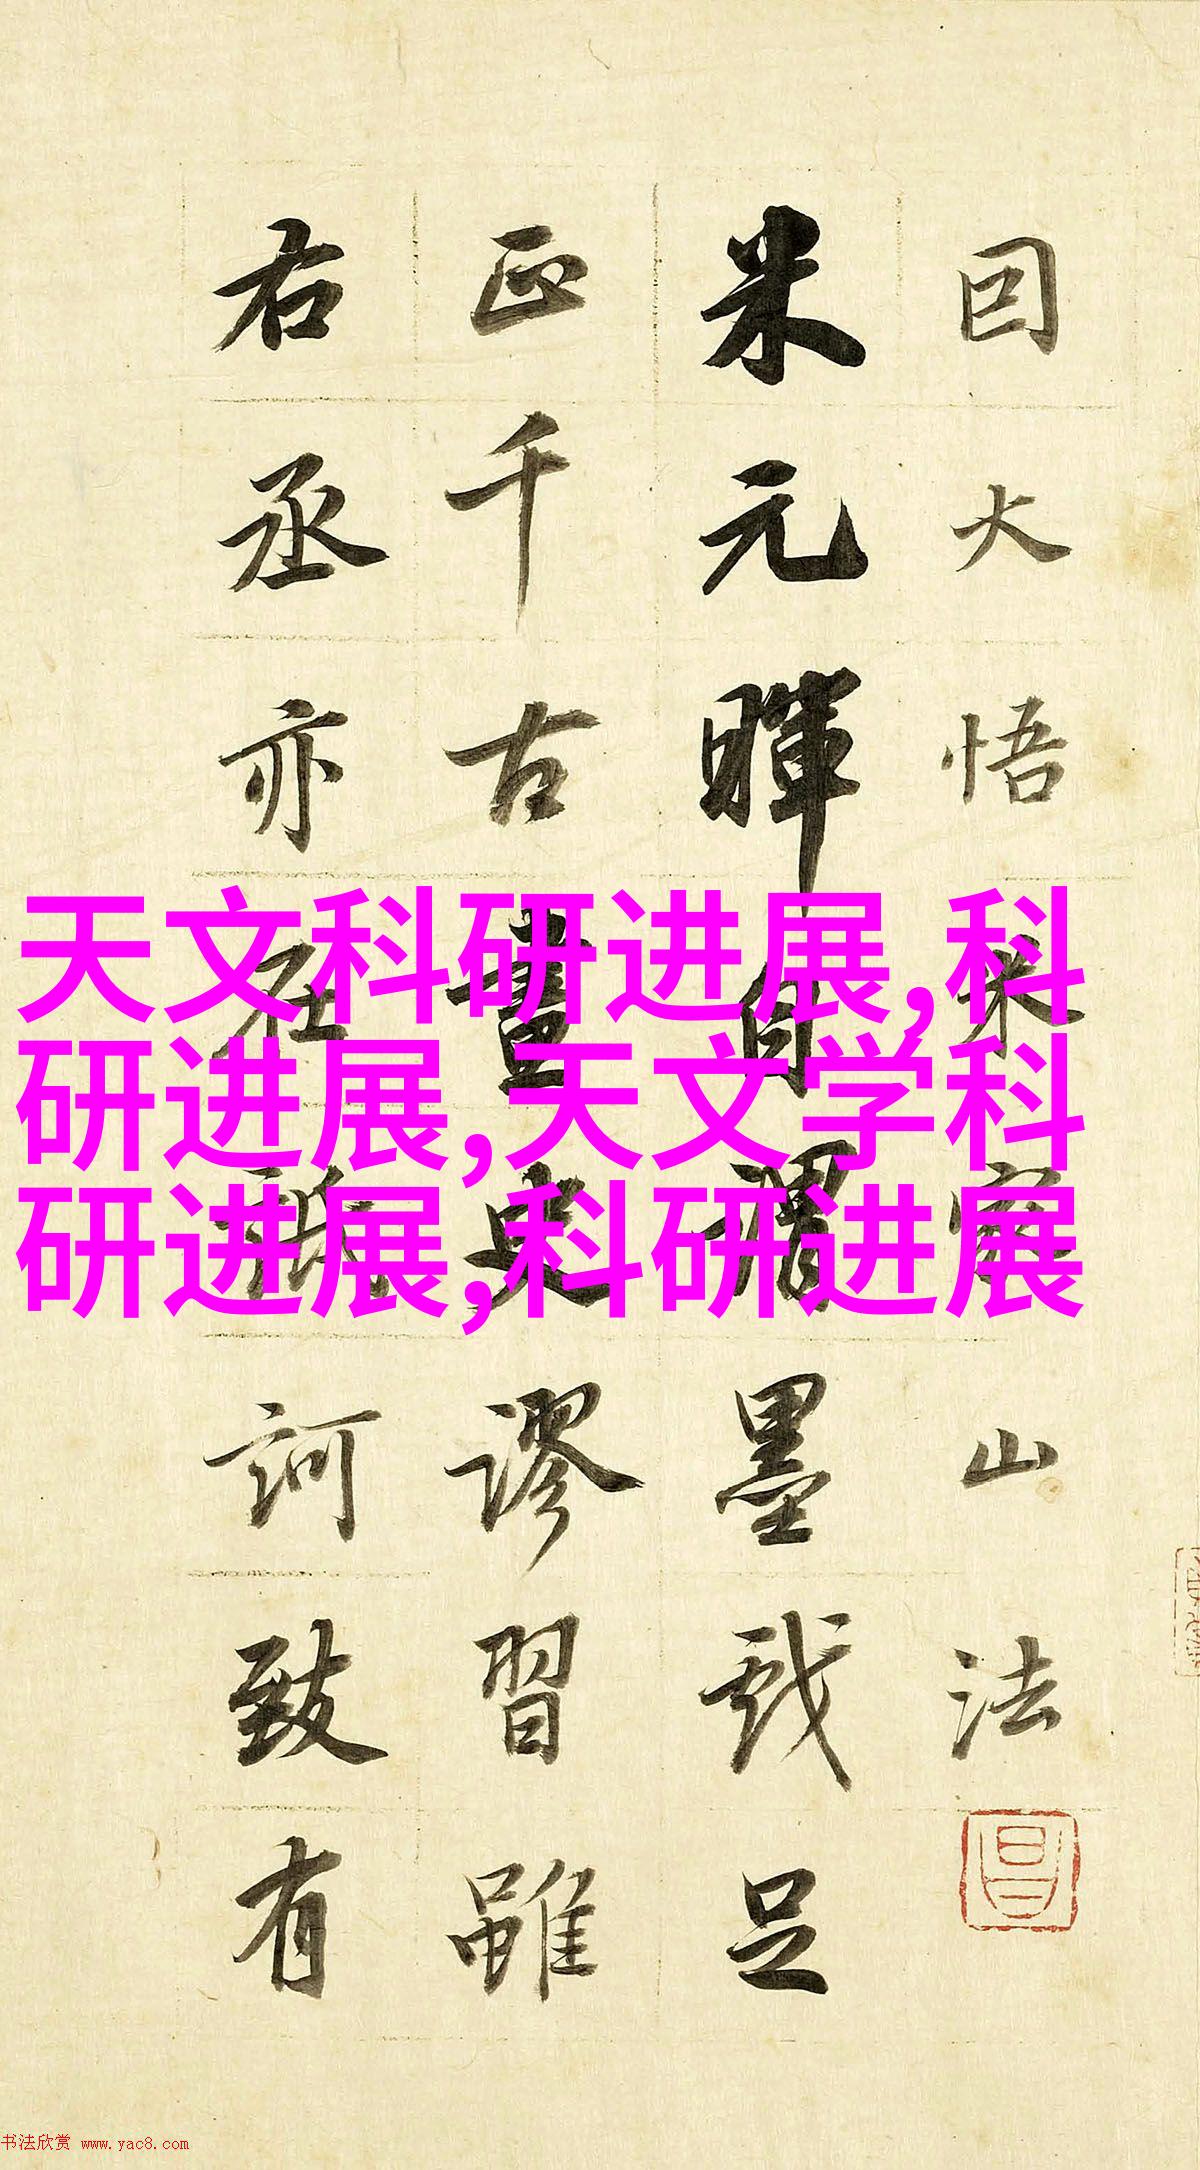 囙大悟米家山法
米元暉自謂墨戲足
正千古畫史謬習雖
右丞亦在詆訶致有
天文科研进展,科
研进展,天文学科
研进展,科研进展
书法欣赏 www.yac8.com